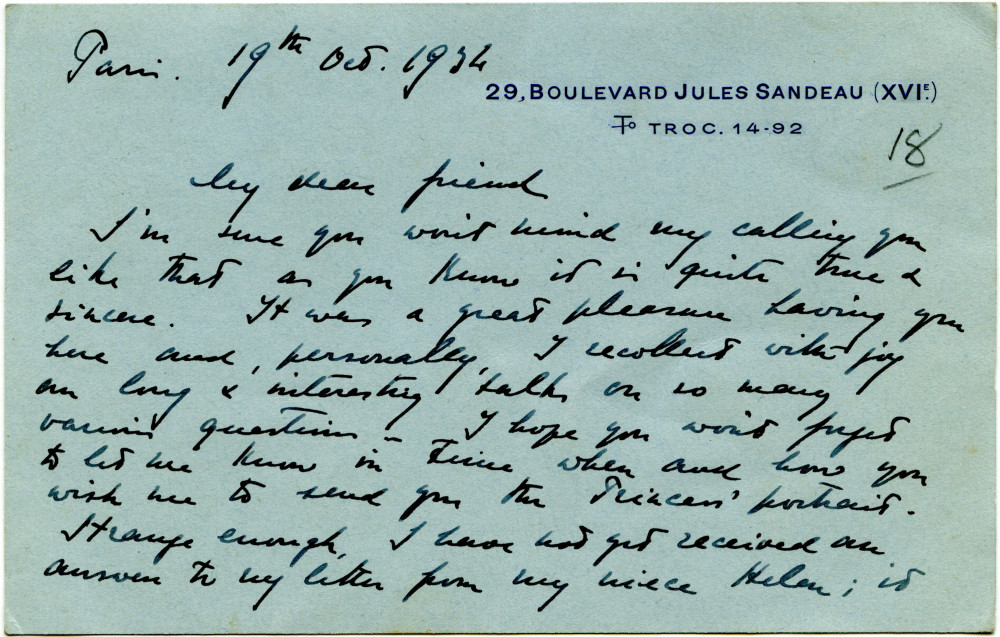 Paris. 19th Oct. 1934
29, BOULEVARD JULES SANDEAU (XVIE.)
To TROC. 14-92
18
My dear friend
I'm sure you won't mind my calling you
like that as you know it is quite true &
sincere. It was a great pleasure having you
here and, personally, I recollect with joy
our long & interesting talks on so many
various questions – I hope you won't forget
to let me know in time when and how you
wish me to send you the Princess' portrait.
Strange enough, I have not yet received an
answer to my letter from my niece Helen; it